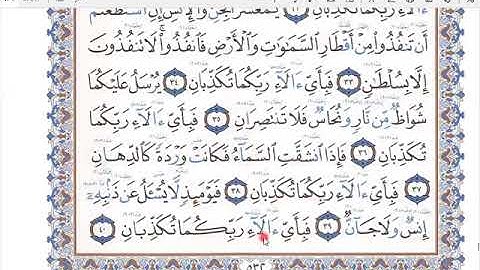 ٣٢ فَبِأَيِّ ءَالَآءِ رَبِّكُمَا تُكَذِّبَانِ يَٰمَعْشَرَ ٱلْجِنِّ وَٱلْإِنسِ إِنِ ٱسْتَطَعْتُمْ
أَن تَنفُذُوا۟ مِنْ أَقْطَارِ ٱلسَّمَٰوَٰتِ وَٱلْأَرْضِ فَٱنفُذُوا۟ ۚ لَا تَنفُذُونَ
إِلَّا بِسُلْطَٰنٍ ٣٣ فَبِأَيِّ ءَالَآءِ رَبِّكُمَا تُكَذِّبَانِ ٣٤ يُرْسَلُ عَلَيْكُمَا
شُوَاظٌ مِّن نَّارٍ وَنُحَاسٌ فَلَا تَنتَصِرَانِ ٣٥ فَبِأَيِّ ءَالَآءِ رَبِّكُمَا
تُكَذِّبَانِ ٣٦ فَإِذَا ٱنشَقَّتِ ٱلسَّمَآءُ فَكَانَتْ وَرْدَةً كَٱلدِّهَانِ
٣٧ فَبِأَيِّ ءَالَآءِ رَبِّكُمَا تُكَذِّبَانِ ٣٨ فَيَوْمَئِذٍ لَّا يُسْـَٔلُ عَن ذَنۢبِهِۦٓ
إِنسٌ وَلَا جَآنٌّ ٣٩ فَبِأَيِّ ءَالَآءِ رَبِّكُمَا تُكَذِّبَانِ ٤٠
٥٣٢